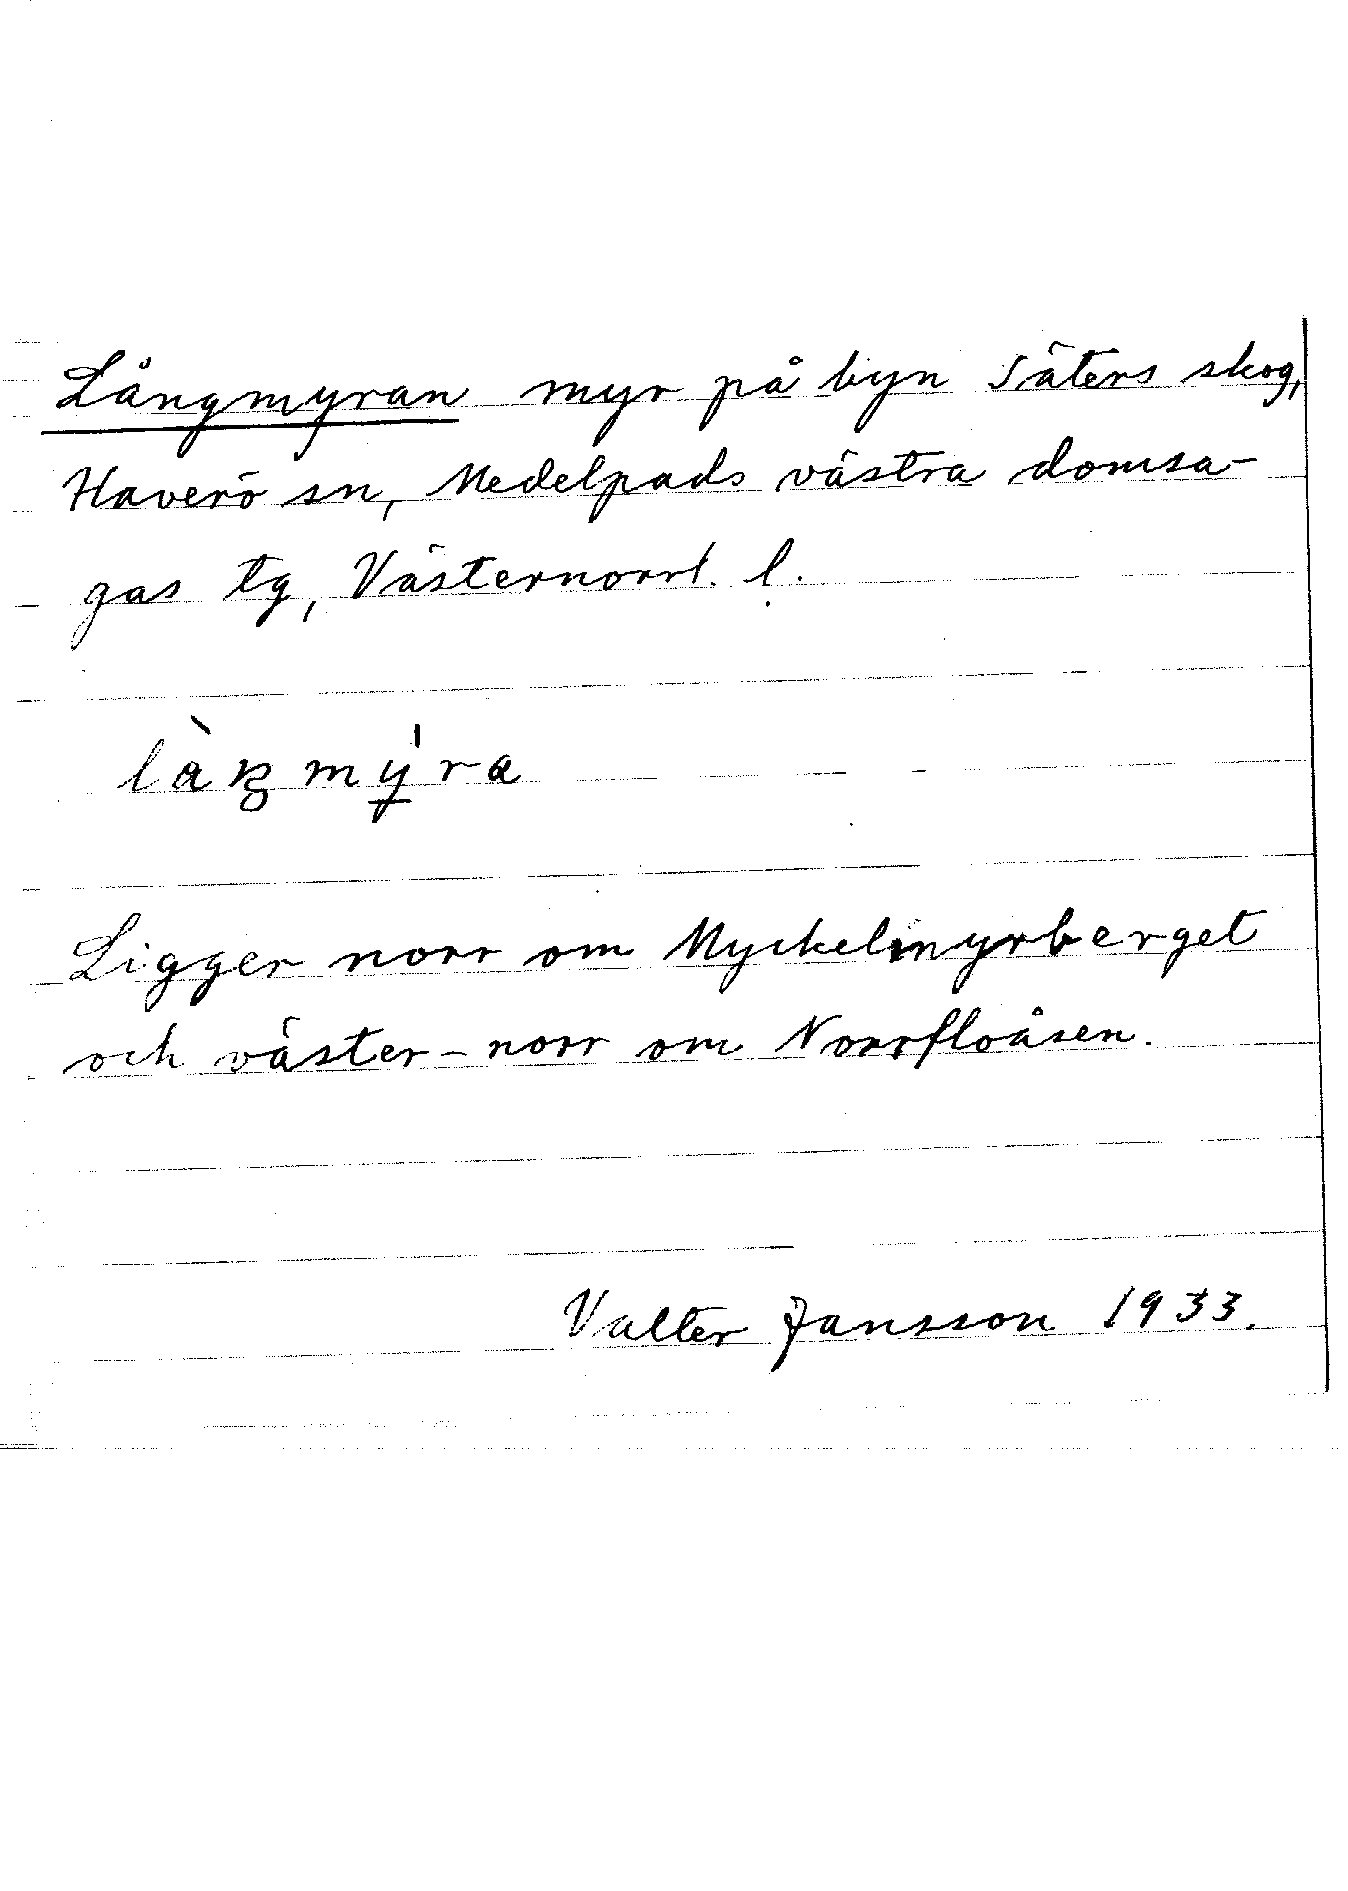 Långmyran myr på byn Säters skog,
Haverö sn, Medelpads västra domsa-
gas tg, Västernorrl. l.
Ligger norr om Myckelmyrberget
och väster-norr om Norrfloåsen.
Valter Jansson 1933.